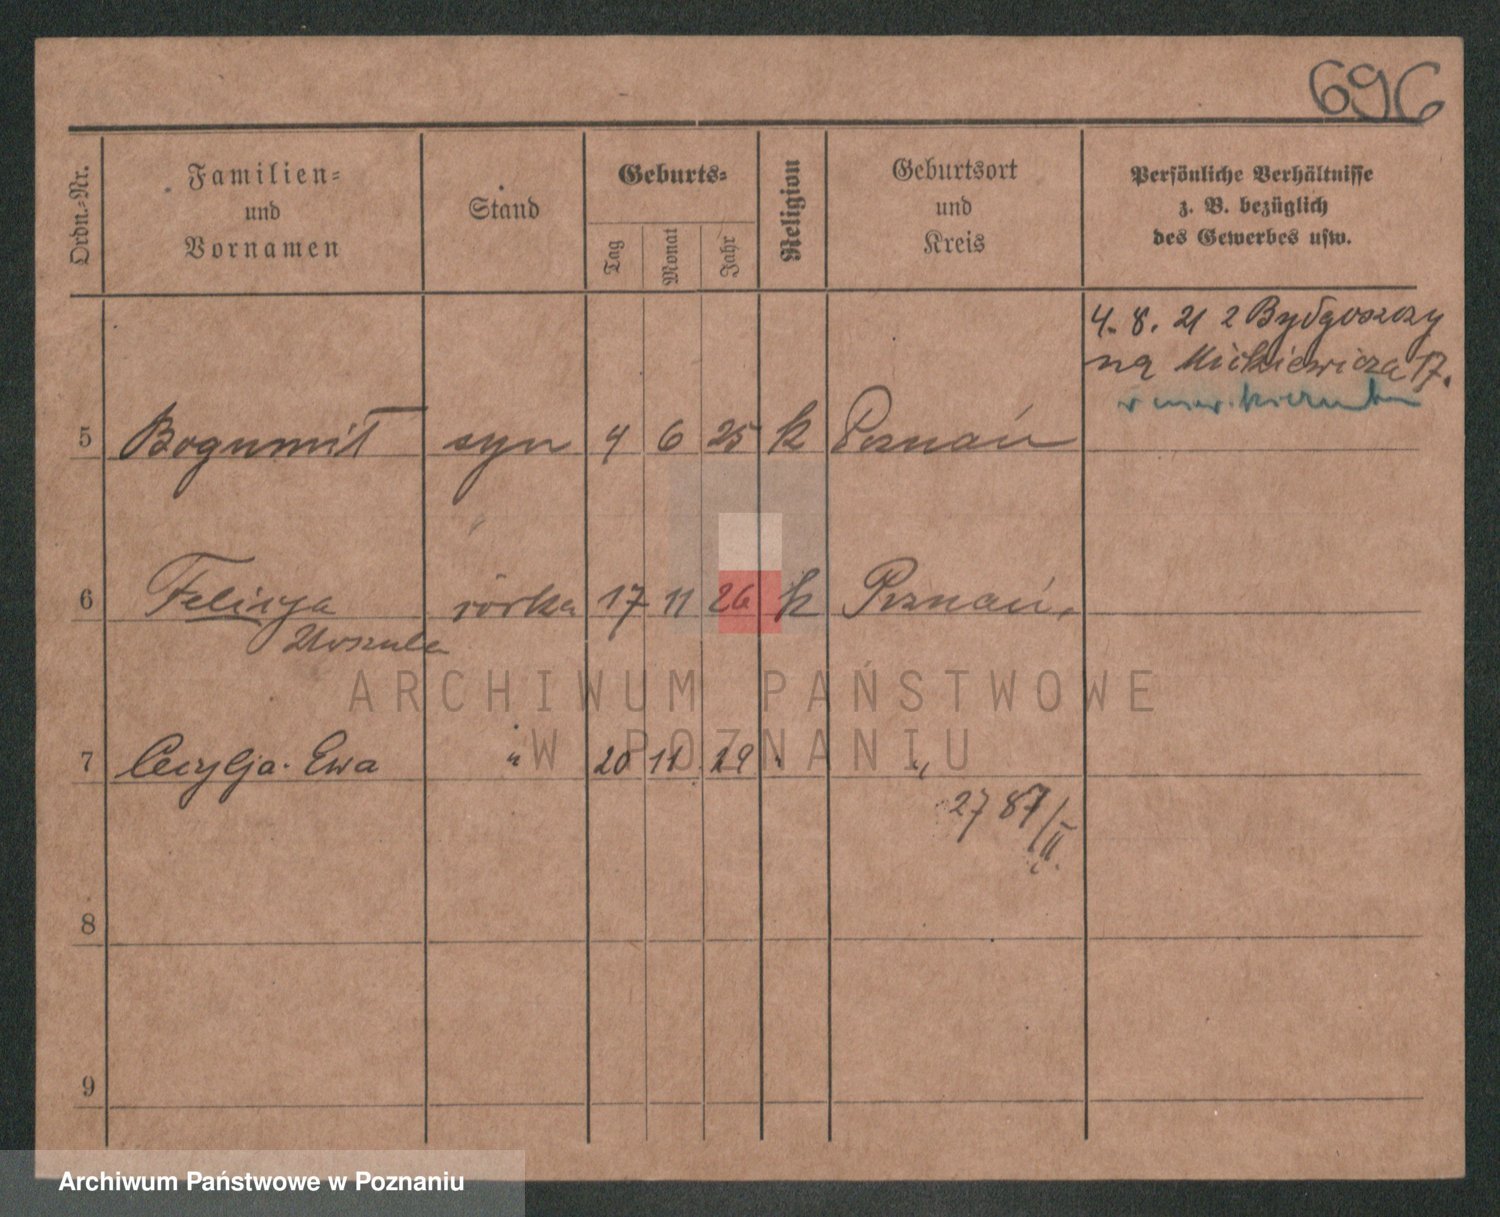 696
Ordn.-Nr.
Familien-
und
Vornamen
Stand
Geburts-
Tag
Monat
Jahr
Religion
Geburtsort
und
Kreis
Persönliche Verhältnisse
z. B. bezüglich
des Gewerbes usw.
4. 8. 21 z Bydgoszczy
na Mickiewicza 17.
5 Bogumił syn 4 6 25 k Poznań
6 Felicja córka 17 11 26 k Poznań.
Urszula
7 Cecylja Ewa " 20 11 29 " "
2787/II.
8
9
ARCHIWUM PAŃSTWOWE
W POZNANIU
Archiwum Państwowe w Poznaniu